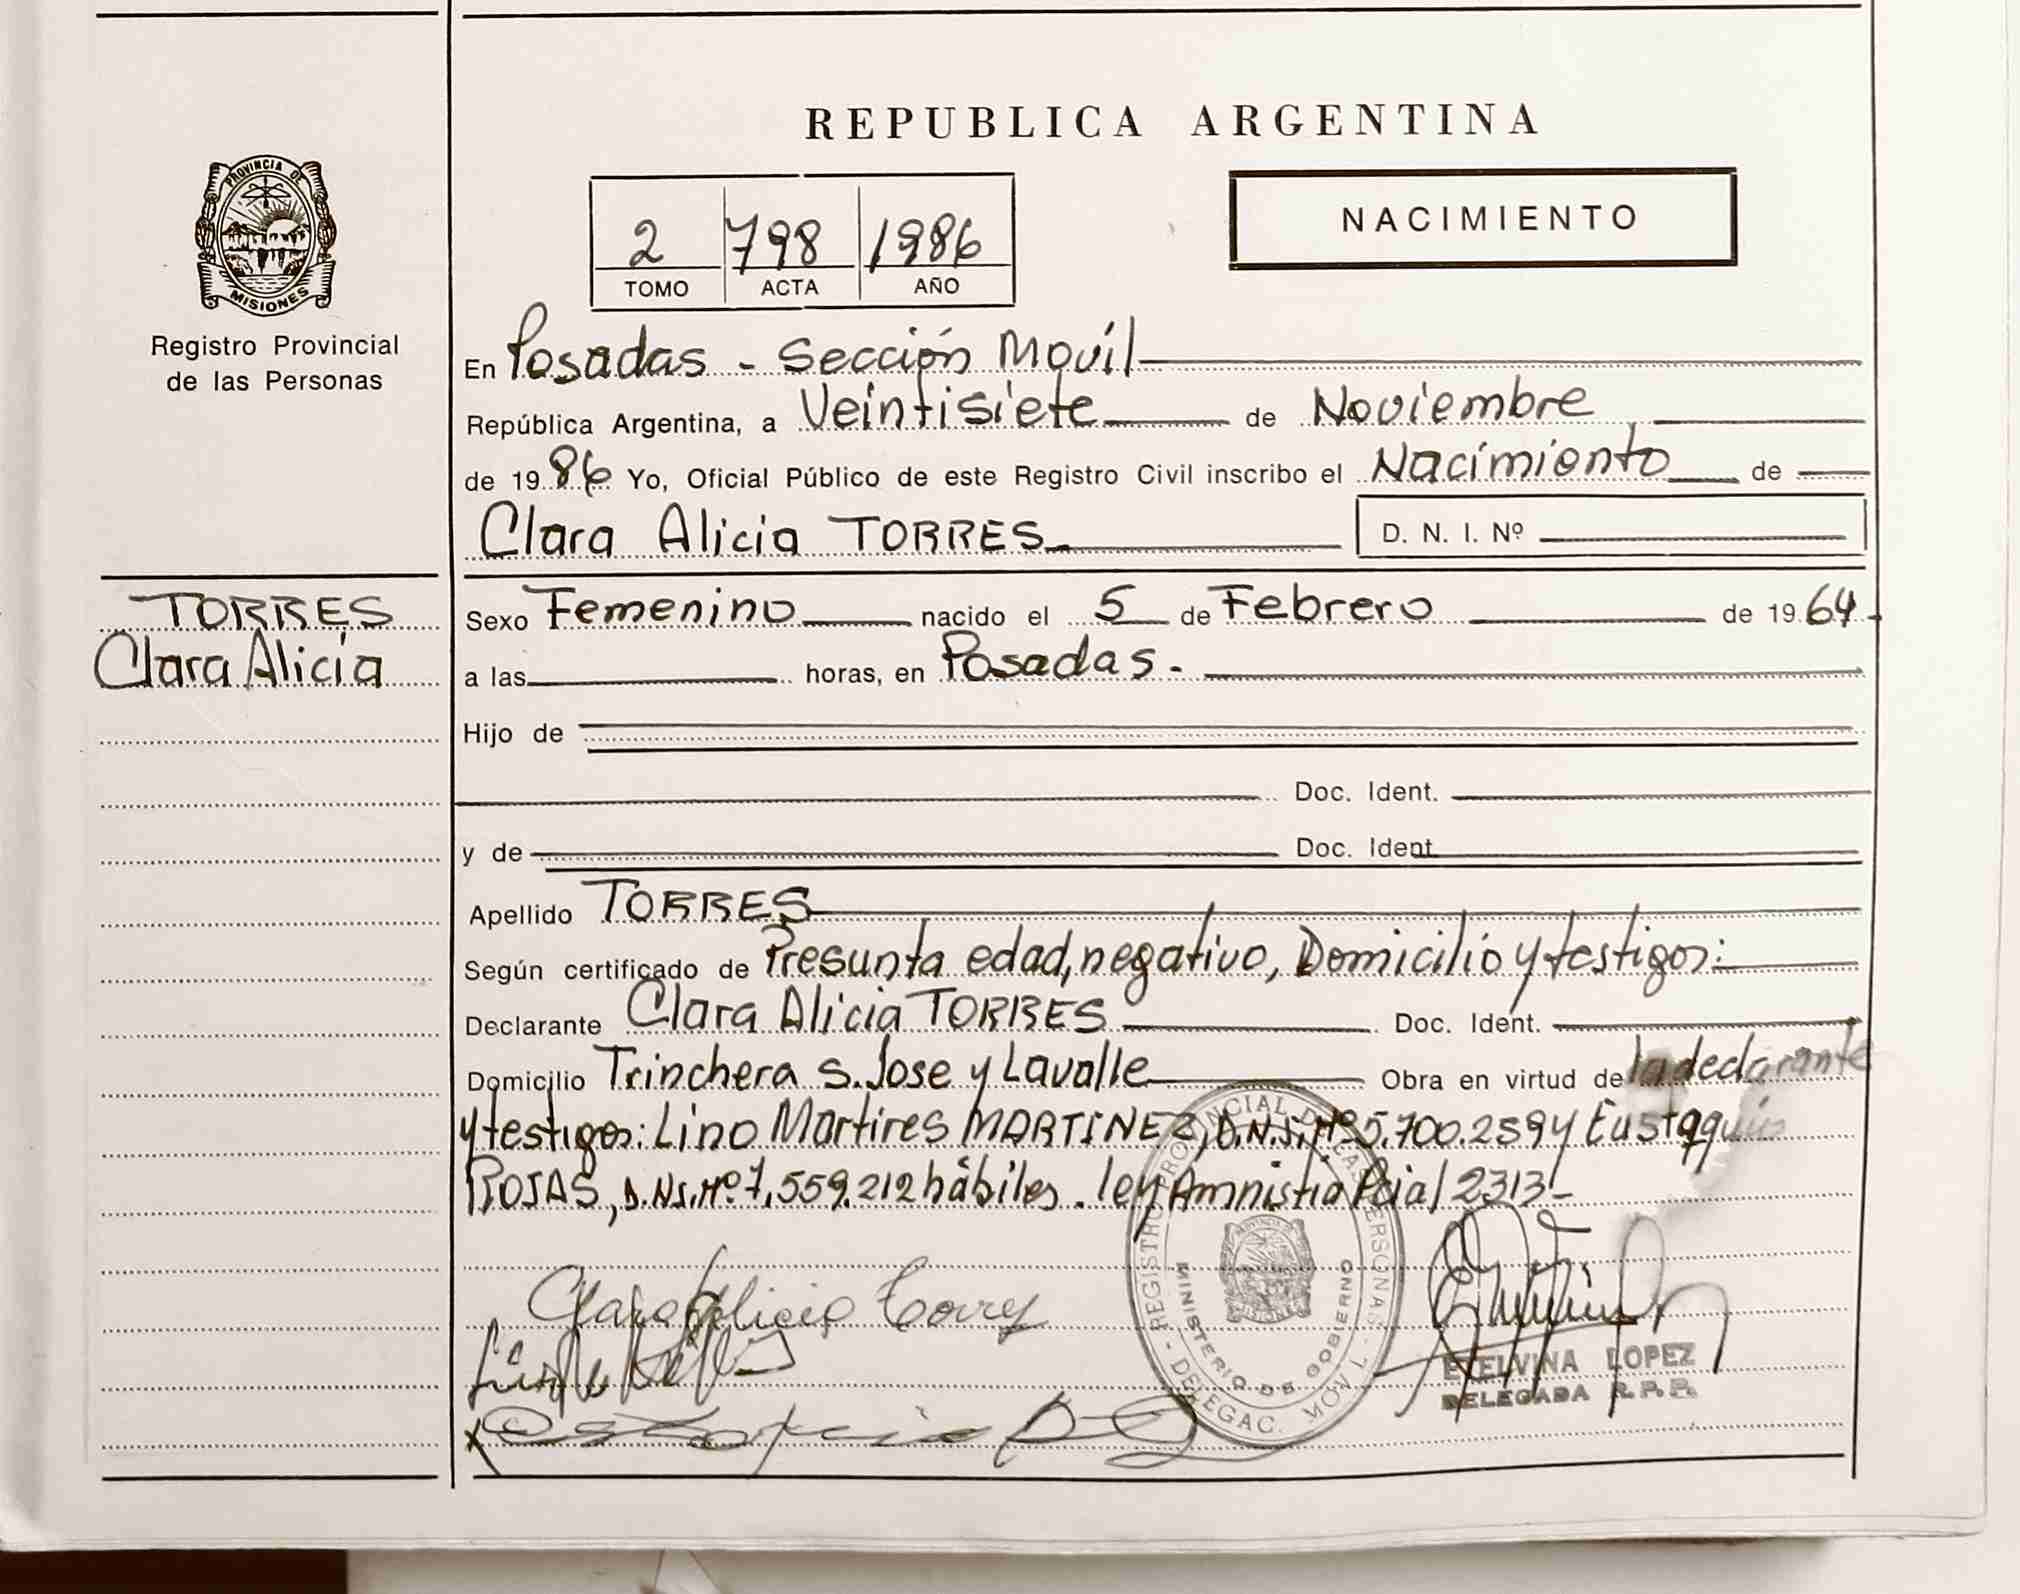 REPUBLICA ARGENTINA
PROVINCIA DE
MISIONES
Registro Provincial
de las Personas
2 798 1986
TOMO ACTA AÑO
NACIMIENTO
En Posadas - Sección Movíl
República Argentina, a Veintisiete de Noviembre
de 1986 Yo, Oficial Público de este Registro Civil inscribo el Nacimiento de
Clara Alicia TORRES D. N. I. Nº
TORRES
Clara Alicia
Sexo Femenino nacido el 5 de Febrero de 1964
a las horas, en Posadas.
Hijo de
Doc. Ident.
y de Doc. Ident
Apellido TORRES
Según certificado de Presunta edad, negativo, Domicilio y testigos:
Declarante Clara Alicia TORRES Doc. Ident.
Domicilio Trinchera S. Jose y Lavalle Obra en virtud de la declarante
y testigos: Lino Martires MARTINEZ, D.N.I. Nº 5.700.259 y Eustaquio
ROJAS, D.N.I. Nº 7.559.212 hábiles. ley Amnistia Pcial 2313-
Clara Alicia
REGISTRO PROVINCIAL DE LAS PERSONAS - DELEGAC. MOVIL -
MINISTERIO DE GOBIERNO
ETELVINA LOPEZ
DELEGADA R.P.P.